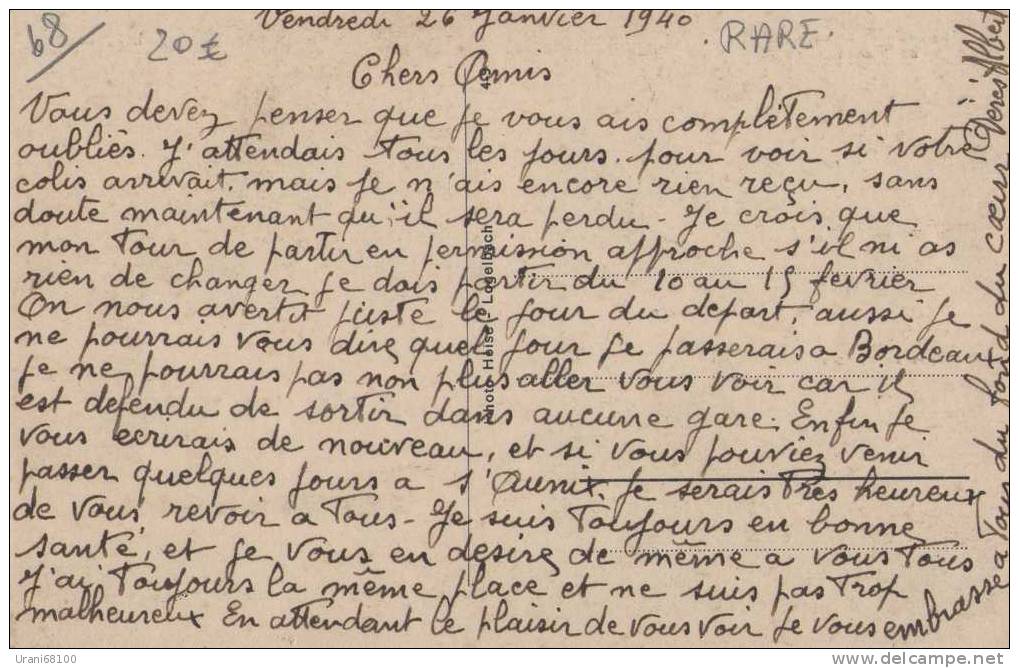 68
20€
Vendredi 26 Janvier 1940
RARE.
Chers Amis
Vous devez penser que je vous ais complètement
oubliés. J'attendais tous les jours. pour voir si votre
colis arrivait. mais je n'ais encore rien reçu, sans
doute maintenant qu'il sera perdu - Je crois que
mon tour de partir en permission approche s'il ni as
rien de changer je dois partir du 10 au 15 fevrier
On nous avertit juste le jour du depart, aussi je
ne pourrais vous dire quel jour je passerais a Bordeaux
je ne pourrais pas non plus aller vous voir car il
est defendu de sortir dans aucune gare. Enfin je
vous ecrirais de nouveau, et si vous pouviez venir
passer quelques jours a s'Aunix. je serais tres heureux
de vous revoir a tous - Je suis toujours en bonne
santé, et je vous en desire de même a vous tous
J'ai toujours la même place et ne suis pas trop
malheureux En attendant le plaisir de vous voir je vous embrasse
a tous du fond du cœur Albert
Photo Heise Logelbach
43
Urani68100
delcampe.net